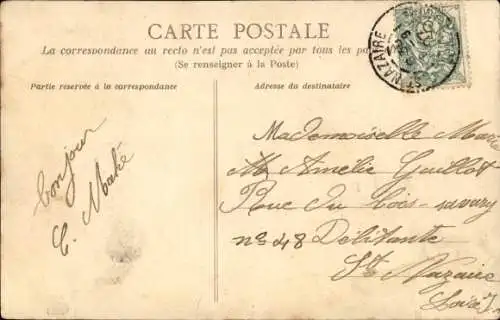 CARTE POSTALE
La correspondance au recto n'est pas acceptée par tous les pa
(Se renseigner à la Poste)
ST NAZAIRE
Partie reservée à la correspondance
Adresse du destinataire
bonjour
E. Mahé
Mademoiselle Marie
Amélie Guillot
Rue du bois-savary
n° 48 Débitante
St Nazaire
Loire